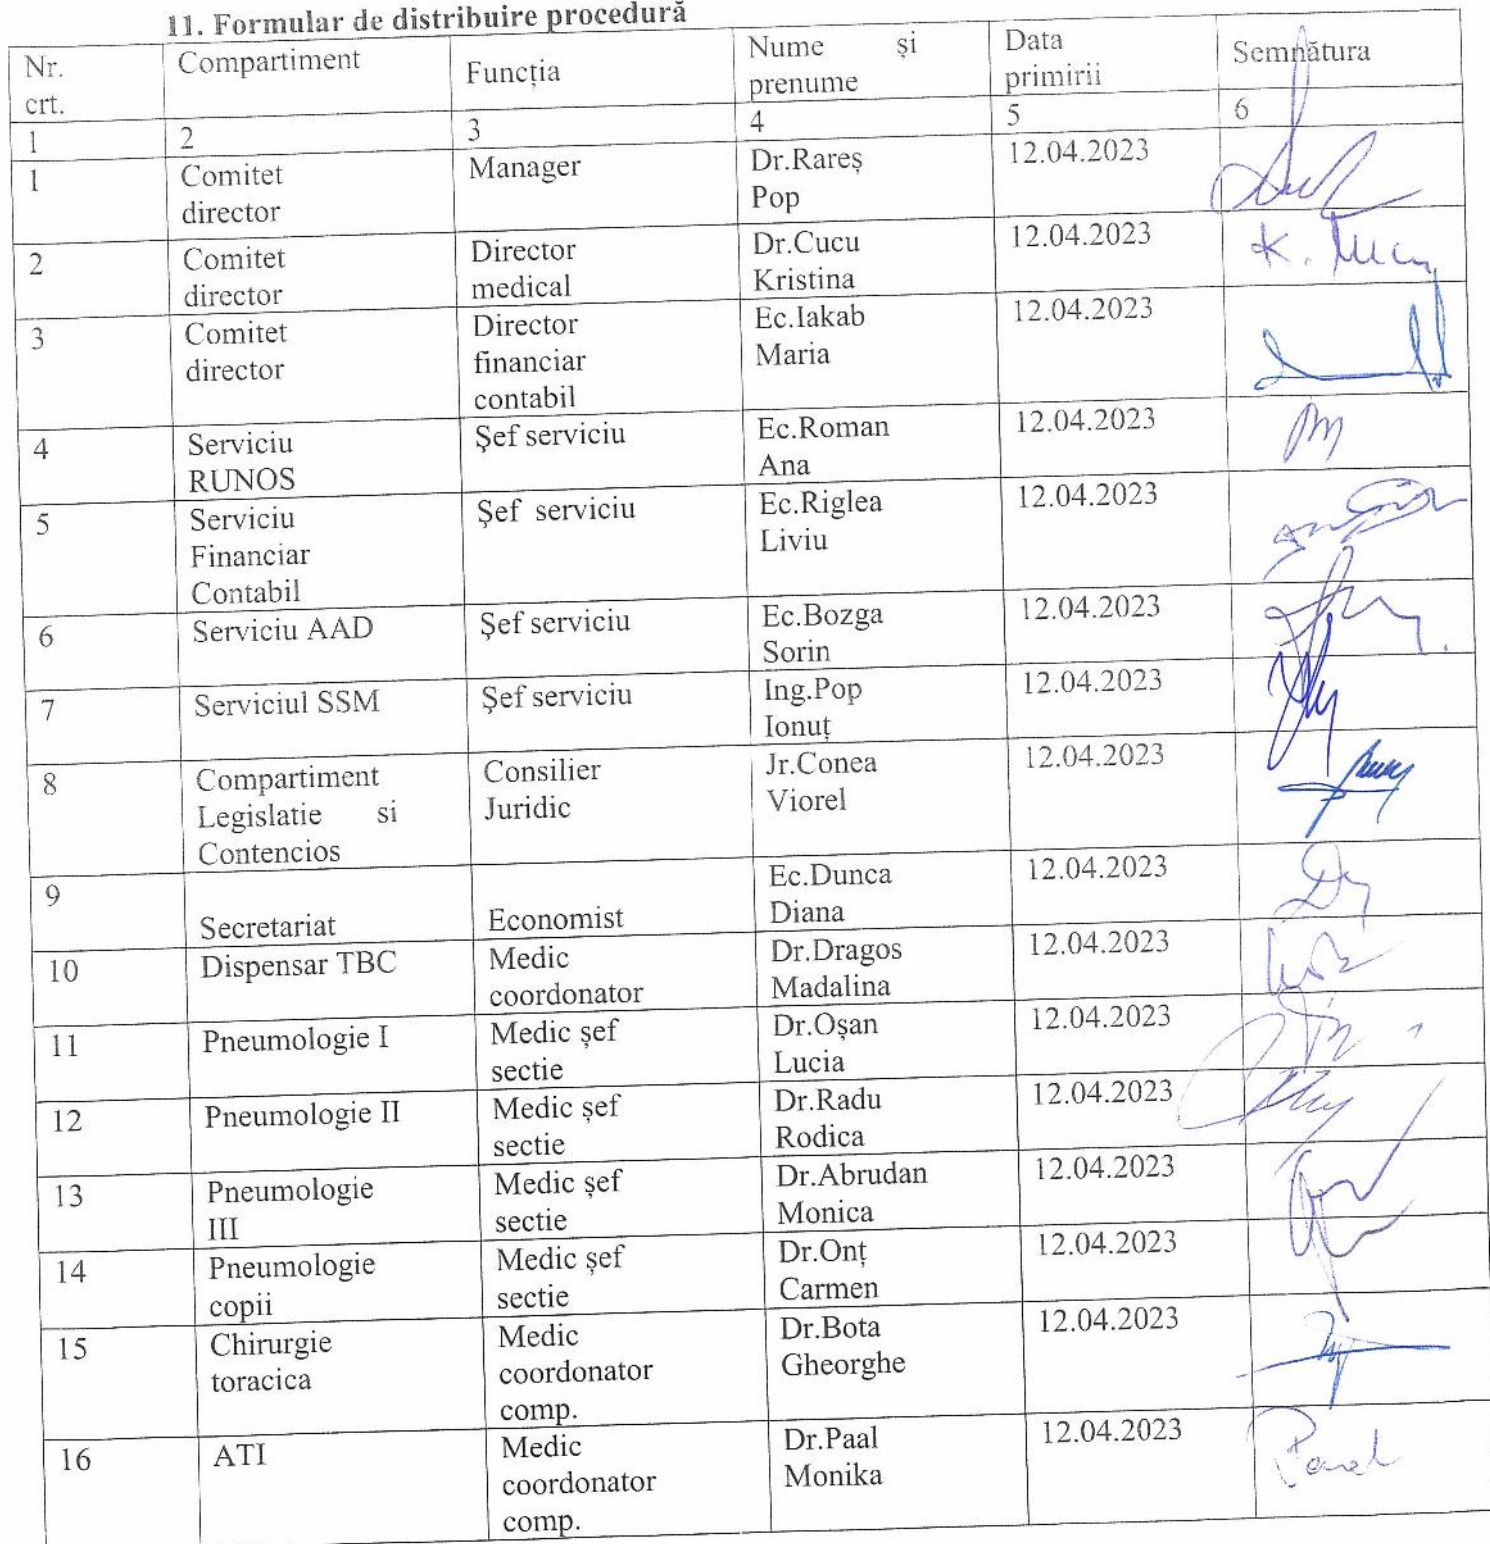 11. Formular de distribuire procedură
Nr. crt. Compartiment Funcția Nume și prenume Data primirii Semnătura
1 2 3 4 5 6
1 Comitet director Manager Dr.Rareș Pop 12.04.2023
2 Comitet director Director medical Dr.Cucu Kristina 12.04.2023
3 Comitet director Director financiar contabil Ec.Iakab Maria 12.04.2023
4 Serviciu RUNOS Şef serviciu Ec.Roman Ana 12.04.2023
5 Serviciu Financiar Contabil Şef serviciu Ec.Riglea Liviu 12.04.2023
6 Serviciu AAD Şef serviciu Ec.Bozga Sorin 12.04.2023
7 Serviciul SSM Şef serviciu Ing.Pop Ionuț 12.04.2023
8 Compartiment Legislatie si Contencios Consilier Juridic Jr.Conea Viorel 12.04.2023
9 Secretariat Economist Ec.Dunca Diana 12.04.2023
10 Dispensar TBC Medic coordonator Dr.Dragos Madalina 12.04.2023
11 Pneumologie I Medic șef sectie Dr.Oșan Lucia 12.04.2023
12 Pneumologie II Medic șef sectie Dr.Radu Rodica 12.04.2023
13 Pneumologie III Medic șef sectie Dr.Abrudan Monica 12.04.2023
14 Pneumologie copii Medic șef sectie Dr.Onț Carmen 12.04.2023
15 Chirurgie toracica Medic coordonator comp. Dr.Bota Gheorghe 12.04.2023
16 ATI Medic coordonator comp. Dr.Paal Monika 12.04.2023